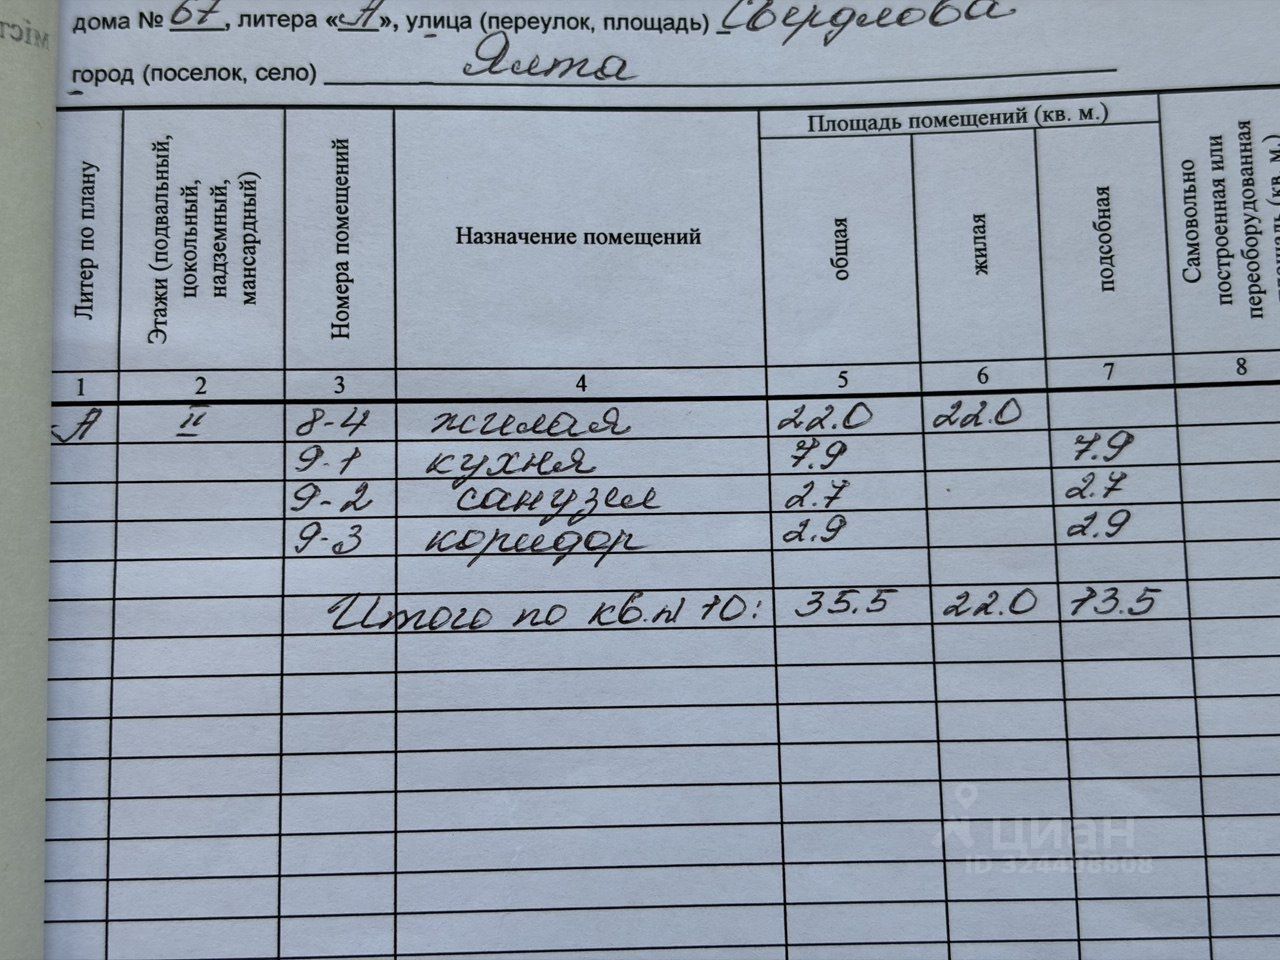 дома № 67, литера «А», улица (переулок, площадь) Свердлова
город (поселок, село) Ялта
Литер по плану
Этажи (подвальный, цокольный, надземный, мансардный)
Номера помещений
Назначение помещений
Площадь помещений (кв. м.)
общая
жилая
подсобная
Самовольно построенная или переоборудованная
1 2 3 4 5 6 7 8
А II 8-4 жилая 22.0 22.0
9-1 кухня 7.9 7.9
9-2 санузел 2.7 2.7
9-3 коридор 2.9 2.9
Итого по кв. № 10: 35.5 22.0 13.5
Циан